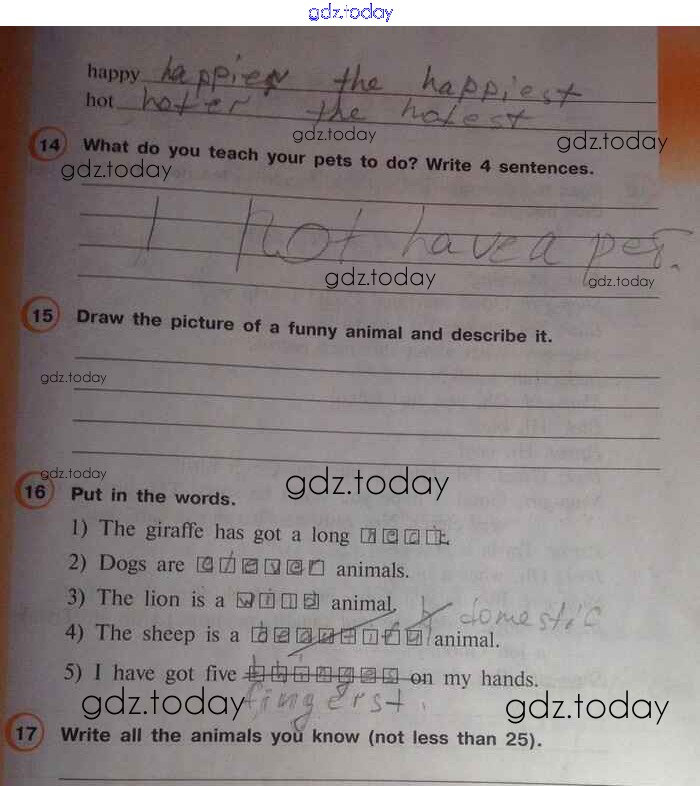 gdz.today
happy happier the happiest
hot hoter the hotest
gdz.today gdz.today
14 What do you teach your pets to do? Write 4 sentences.
gdz.today
I not have a pet.
gdz.today gdz.today
15 Draw the picture of a funny animal and describe it.
gdz.today
gdz.today
gdz.today
16 Put in the words.
1) The giraffe has got a long neck.
2) Dogs are clever animals.
3) The lion is a wild animal.
domestic
4) The sheep is a animal.
5) I have got five on my hands.
gdz.today fingerst. gdz.today
17 Write all the animals you know (not less than 25).